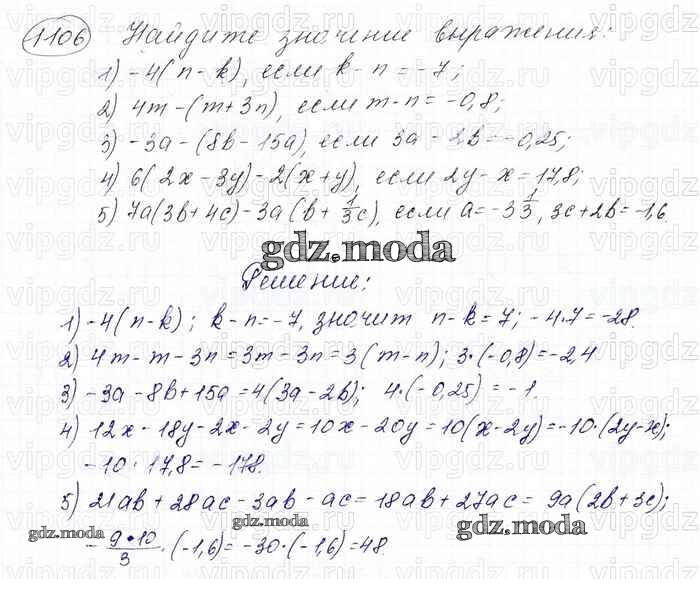 1106 Найдите значение выражения:
1) -4(n-k), если k-n=-7;
2) 4m-(m+3n), если m-n=-0,8;
3) -3a-(8b-15a), если 3a-2b=-0,25;
4) 6(2x-3y)-2(x+y), если 2y-x=17,8;
5) 7a(3b+4c)-3a(b+1/3c), если a=-3 1/3, 3c+2b=-1,6
gdz.moda
Решение:
1) -4(n-k); k-n=-7, значит n-k=7; -4·7=-28.
2) 4m-m-3n=3m-3n=3(m-n); 3·(-0,8)=-2,4
3) -3a-8b+15a=4(3a-2b); 4·(-0,25)=-1.
4) 12x-18y-2x-2y=10x-20y=10(x-2y)=-10·(2y-x);
-10·17,8=-178.
5) 21ab+28ac-3ab-ac=18ab+27ac=9a(2b+3c);
gdz.moda gdz.moda gdz.moda
-9·10/3·(-1,6)=-30·(-1,6)=48.